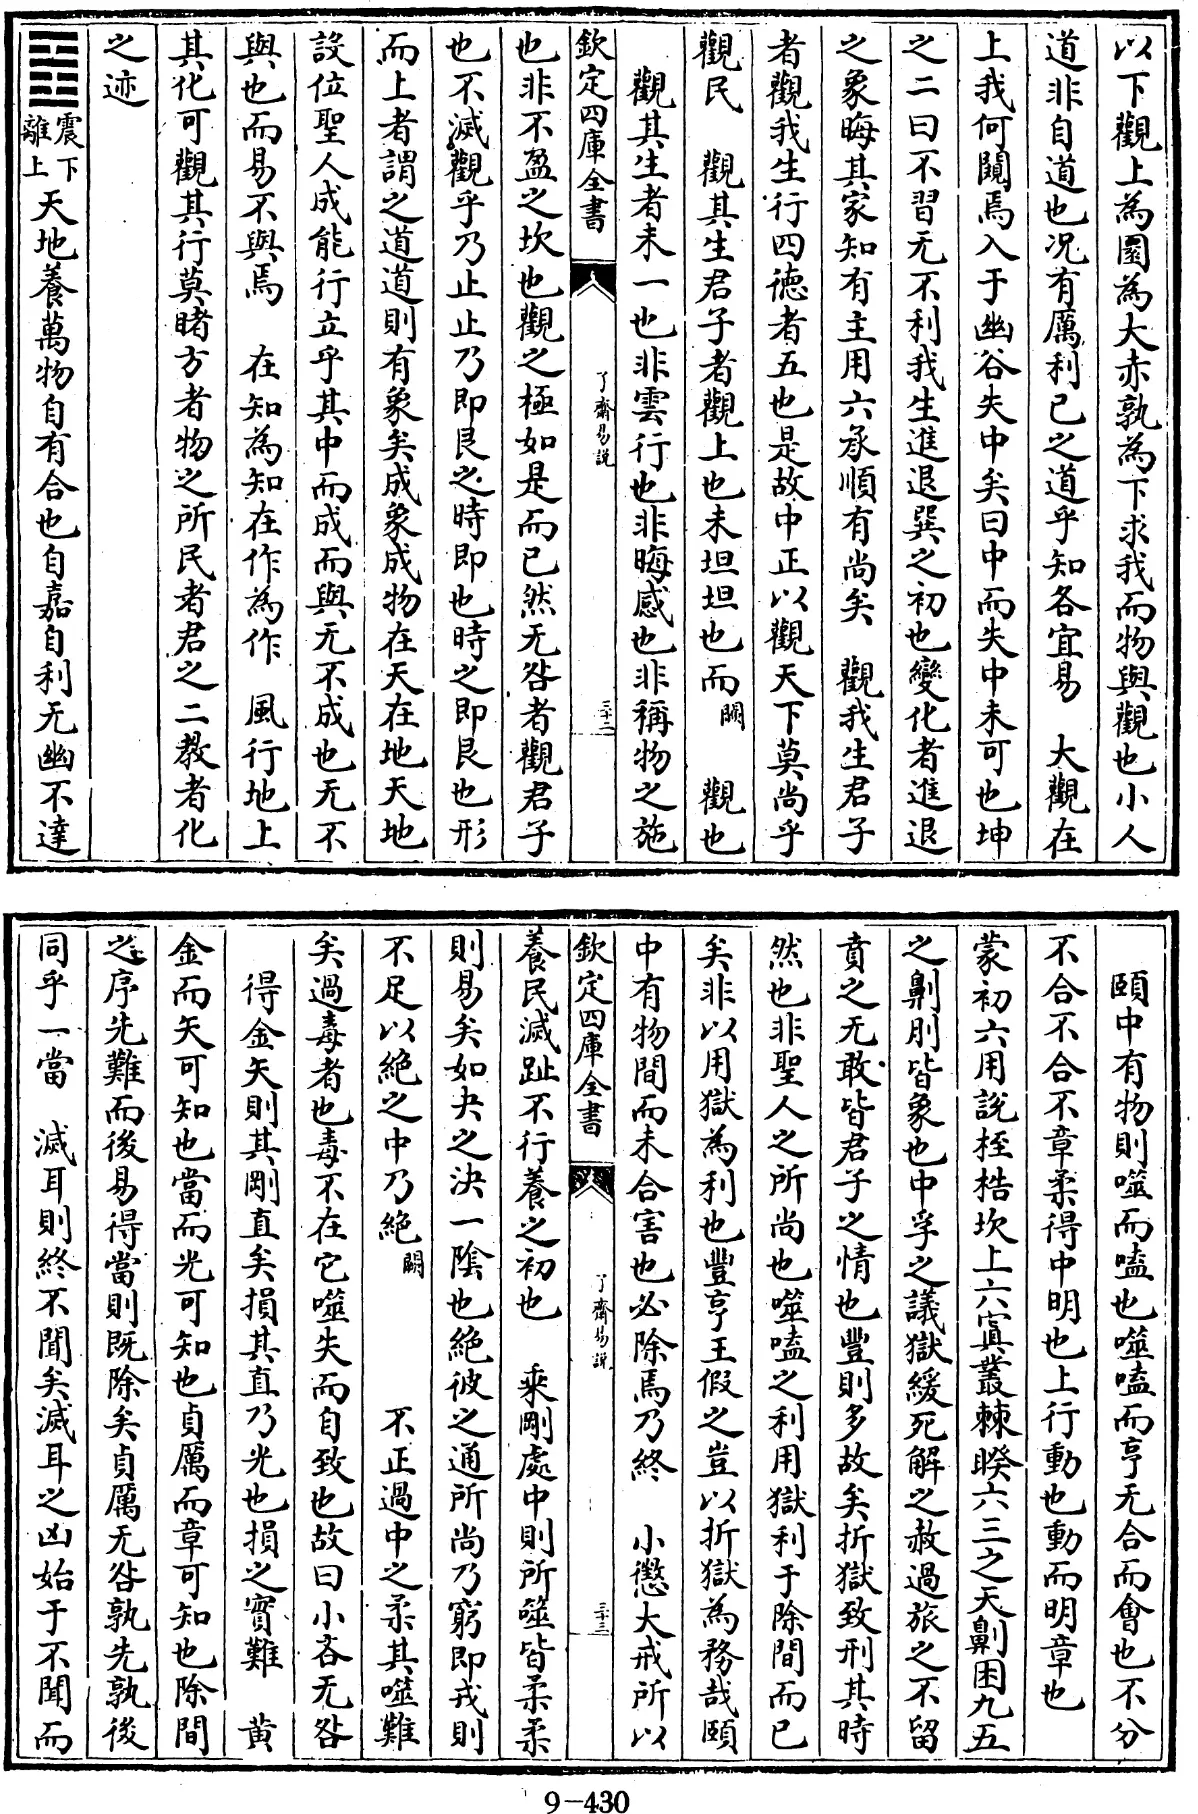 以下觀上為圜為大赤孰為下求我而物與觀也小人
道非自道也况有厲利已之道乎知各宜易　大觀在
上我何闚焉入于幽谷失中矣曰中而失中未可也坤
之二曰不習无不利我生進退巽之初也變化者進退
之象晦其家知有主用六承順有尚矣　觀我生君子
者觀我生行四德者五也是故中正以觀天下莫尚乎
觀民　觀其生君子者觀上也未坦坦也而闕　觀也
觀其生者未一也非雲行也非晦感也非稱物之施
欽定四庫全書　了齋易説　三十二
也非不盈之坎也觀之極如是而已然无咎者觀君子
也不滅觀乎乃止止乃即艮之時即也時之即艮也形
而上者謂之道道則有象矣成象成物在天在地天地
設位聖人成能行立乎其中而成而與无不成也无不
與也而易不與焉　在知為知在作為作　風行地上
其化可觀其行莫睹方者物之所民者君之二教者化
之迹
䷔震下離上天地養萬物自有合也自嘉自利无幽不達
頤中有物則噬而嗑也噬嗑而亨无合而會也不分
不合不合不章柔得中明也上行動也動而明章也
蒙初六用說桎梏坎上六寘叢棘睽六三之天劓困九五
之劓刖皆象也中孚之議獄緩死解之赦過旅之不留
賁之无敢皆君子之情也豐則多故矣折獄致刑其時
然也非聖人之所尚也噬嗑之利用獄利于除間而已
矣非以用獄為利也豐亨王假之豈以折獄為務哉頤
中有物間而未合害也必除焉乃終　小懲大戒所以
欽定四庫全書　了齋易説　三十三
養民滅趾不行養之初也　乘剛處中則所噬皆柔柔
則易矣如夬之決一陰也絶彼之通所尚乃窮即戎則
不足以絶之中乃絶闕　不正過中之柔其噬難
矣過毒者也毒不在它噬失而自致也故曰小吝无咎
得金矢則其剛直矣損其直乃光也損之實難　黄
金而矢可知也當而光可知也貞厲而章可知也除間
之序先難而後易得當則既除矣貞厲无咎孰先孰後
同乎一當　滅耳則終不聞矣滅耳之凶始于不聞而
9-430